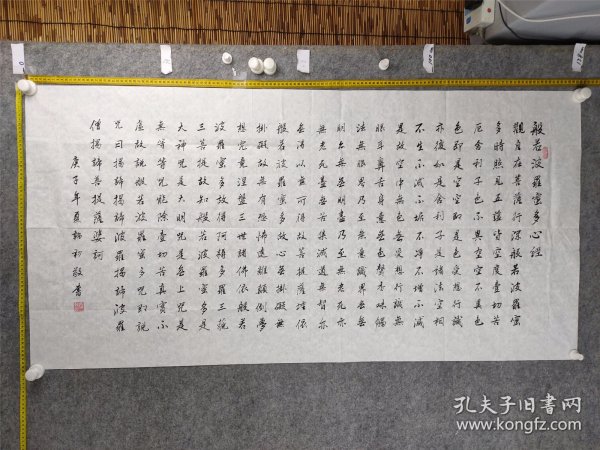 般若波羅蜜多心經
觀自在菩薩行深般若波羅蜜
多時照見五蘊皆空度一切苦
厄舍利子色不異空空不異色
色即是空空即是色受想行識
亦復如是舍利子是諸法空相
不生不滅不垢不淨不增不減
是故空中無色無受想行識無
眼耳鼻舌身意無色聲香味觸
法無眼界乃至無意識界無無
明亦無無明盡乃至無老死亦
無老死盡無苦集滅道無智亦
無得以無所得故菩提薩埵依
般若波羅蜜多故心無掛礙無
掛礙故無有恐怖遠離顛倒夢
想究竟涅盤三世諸佛依般若
波羅蜜多故得阿耨多羅三藐
三菩提故知般若波羅蜜多是
大神咒是大明咒是無上咒是
無等等咒能除一切苦真實不
虛故說般若波羅蜜多咒即說
咒曰揭諦揭諦波羅揭諦波羅
僧揭諦菩提薩婆訶
庚子年夏敬書
孔夫子旧書网
www.kongfz.com